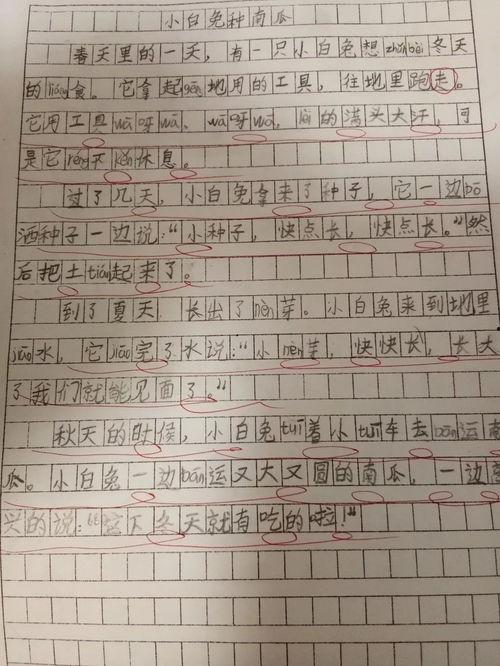 小白兔种南瓜
春天里的一天，有一只小白兔想zhǔnbèi冬天
的liáng食。它拿起gēn地用的工具，往地里跑走。
它用工具wā呀wā、wā呀wā，的满头大汗，可
是它réng不kěn休息。
过了几天，小白兔拿来了种子，它一边bō
洒种子一边说：“小种子，快点长，快点长。”然
后把土tián起来了。
到了夏天 长出了nèn芽。小白兔来到地里
jiāo水，它jiāo完了水说：“小nèn芽，快快长，长大
了我们就能见面了。”
秋天的时候，小白兔tuī着小tuī车去bān运南
瓜。小白兔一边bān运又大又圆的南瓜，一边高
兴的说：“这下冬天就有吃的啦！”